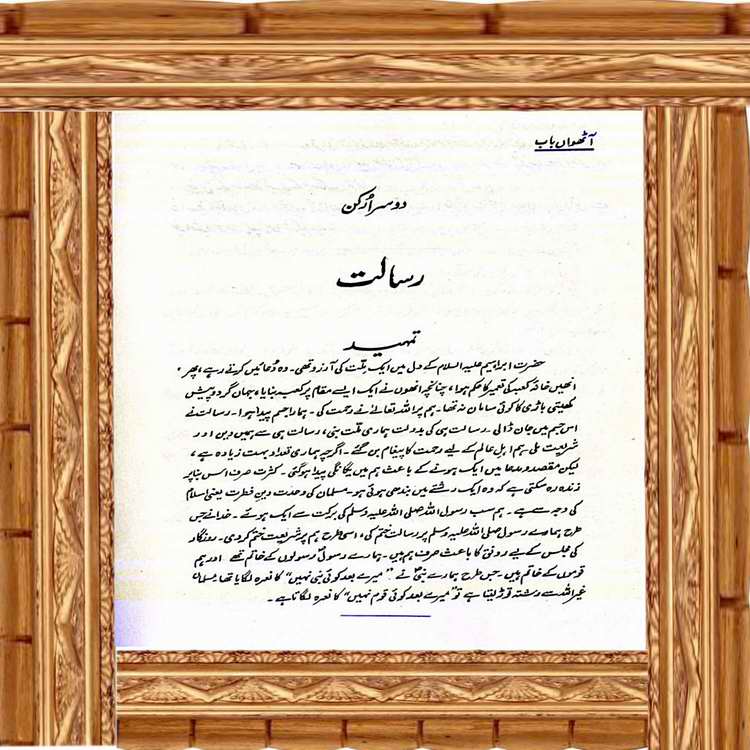 آٹھواں باب
دوسرا رُکن
رسالت
تمہید
حضرت ابراہیم علیہ السلام کے دل میں ایک ملّت کی آرزو تھی۔ وہ دُعائیں کرتے رہے، پھر
انھیں خانہ کعبہ کی تعمیر کا حکم ہوا، چنانچہ انھوں نے ایک ایسے مقام پر کعبہ بنایا، جہاں گرد و پیش
کھیتی باڑی کا کوئی سامان نہ تھا۔ ہم پر اللہ تعالےٰ نے رحمت کی۔ ہمارا جسم پیدا ہوا۔ رسالت نے
اس جسم میں جان ڈالی۔ رسالت ہی کی بدولت ہماری ملّت بنی، رسالت ہی سے ہمیں دین اور
شریعت ملی ہم اہلِ عالم کے لیے رحمت کا پیغام بن گئے۔ اگرچہ ہماری تعداد بہت زیادہ ہے،
لیکن مقصد و مدعا میں ایک ہونے کے باعث ہم میں یگانگی پیدا ہوگئی۔ کثرت صرف اس بنا پر
زندہ رہ سکتی ہے کہ وہ ایک رشتے میں بندھی ہوئی ہو۔ مسلمان کی وحدت دینِ فطرت یعنی اسلام
کی وجہ سے ہے۔ ہم سب رسول اللہ صلی اللہ علیہ وسلم کی برکت سے ایک ہوئے۔ خدا نے جس
طرح ہمارے رسول صلی اللہ علیہ وسلم پر رسالت ختم کی، اسی طرح ہم پر شریعت ختم کر دی۔ روزگار
کی مجلس کے لیے رونق کا باعث صرف ہم ہیں۔ ہمارے رسولؐ رسولوں کے خاتم تھے اور ہم
قوموں کے خاتم ہیں۔ جس طرح ہمارے نبیؐ نے "میرے بعد کوئی نبی نہیں" کا نعرہ لگایا تھا مسلمان
غیر اللہ سے رشتہ توڑ لیتا ہے تو "میرے بعد کوئی قوم نہیں" کا نعرہ لگاتا ہے۔